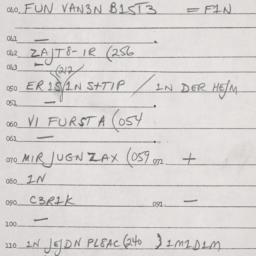 040 FUN VAN3N B1ST3 = F1N
041 —
042 ZAJT8-1R (256
043 — (212
050 ER 1S/1N S+TIP / 1N DER HEJM
051 —
060 VI FURST A (054
061 —
070 MIR JUGN ZAX (059 071 +
080 1N
090 C3R1K 091 —
100 —
110 1N JEJDN PLEAC (240 ) 1M1D1M